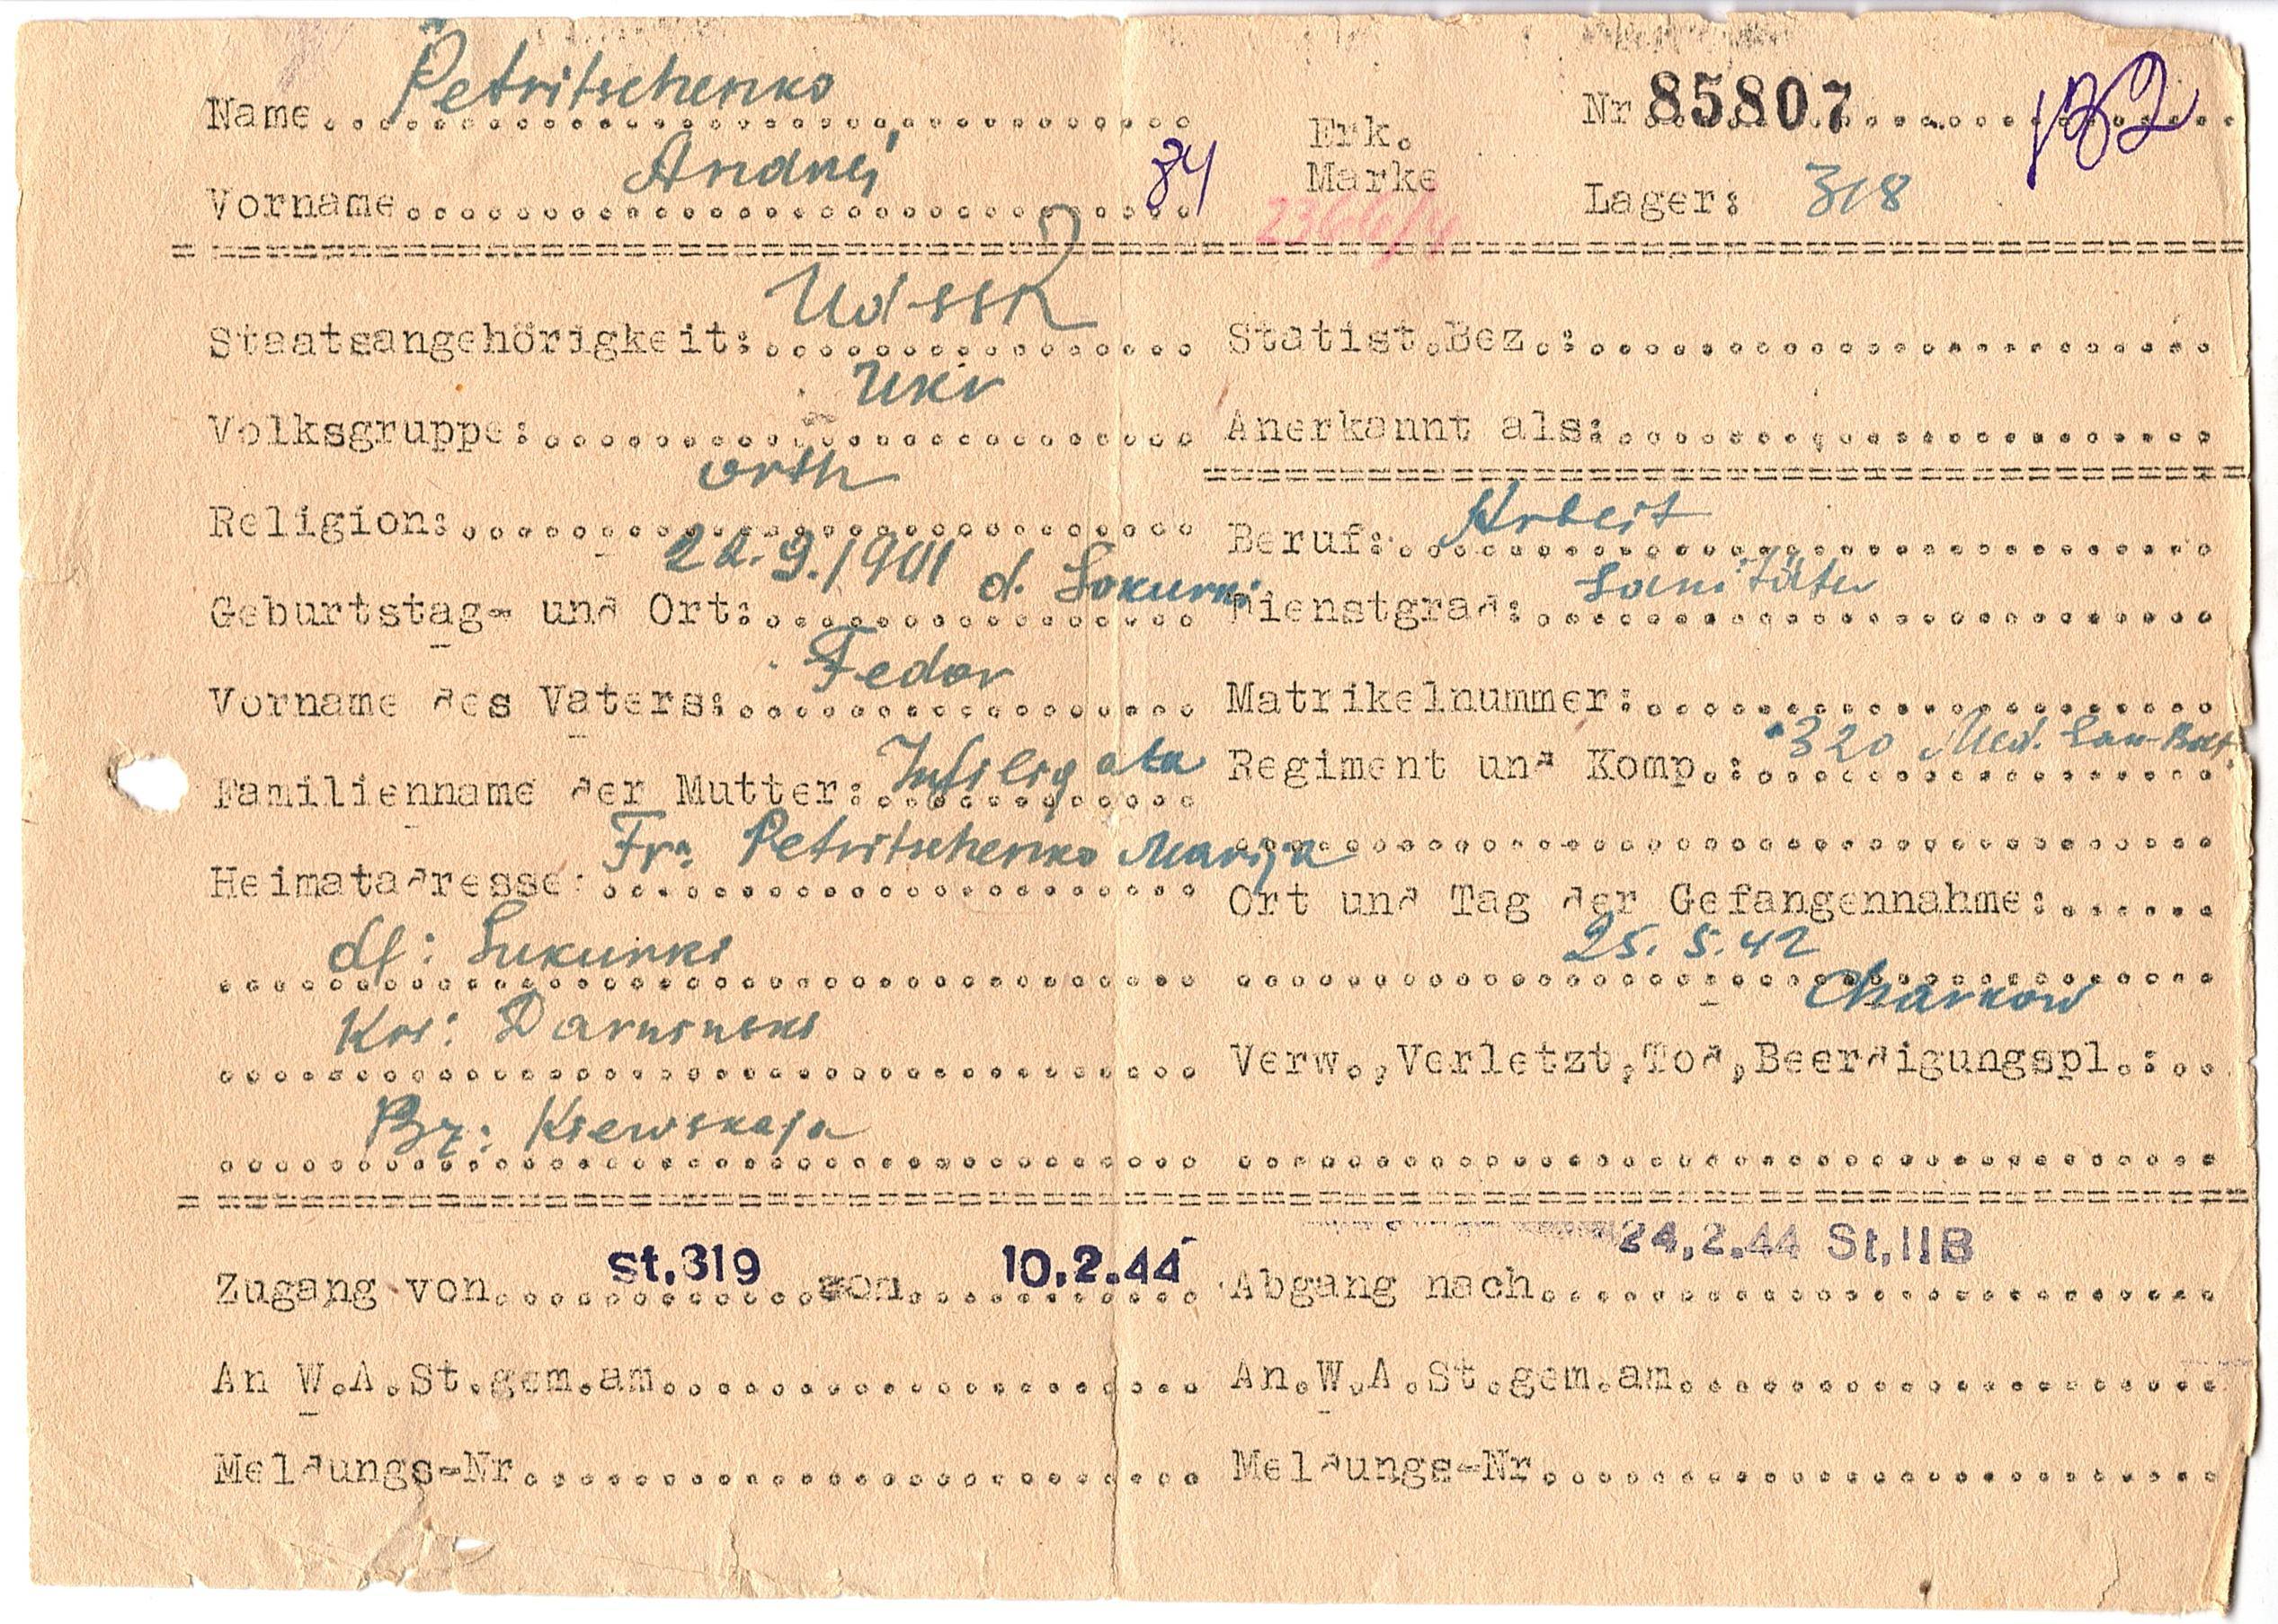 Name Petritschenko
Vorname Andrej 84
Erk. Marke
Nr 85807
Lager: 318
Staatsangehörigkeit: UdSSR
Volksgruppe: Ukr
Religion: orth
Geburtstag- und Ort: d.
Vorname des Vaters: Fedor
Familienname der Mutter:
Heimatadresse: Fr. Petritschenko Marija
df:
Krs:
Bz: Kiewskaja
Statist.Bez.:
Anerkannt als:
Beruf: Arbeit
Dienstgrad: Sanitäter
Matrikelnummer:
Regiment und Komp.: 320 Med. San-Bat.
Ort und Tag der Gefangennahme:
25. 5. 42
Charkow
Verw.,Verletzt,Tod,Beerdigungspl.:
Zugang von St.319 10.2.44
An W.A.St.gem.am
Meldungs-Nr
24.2.44 St.IIB
Abgang nach
An.W.A.St.gem.am
Meldungs-Nr